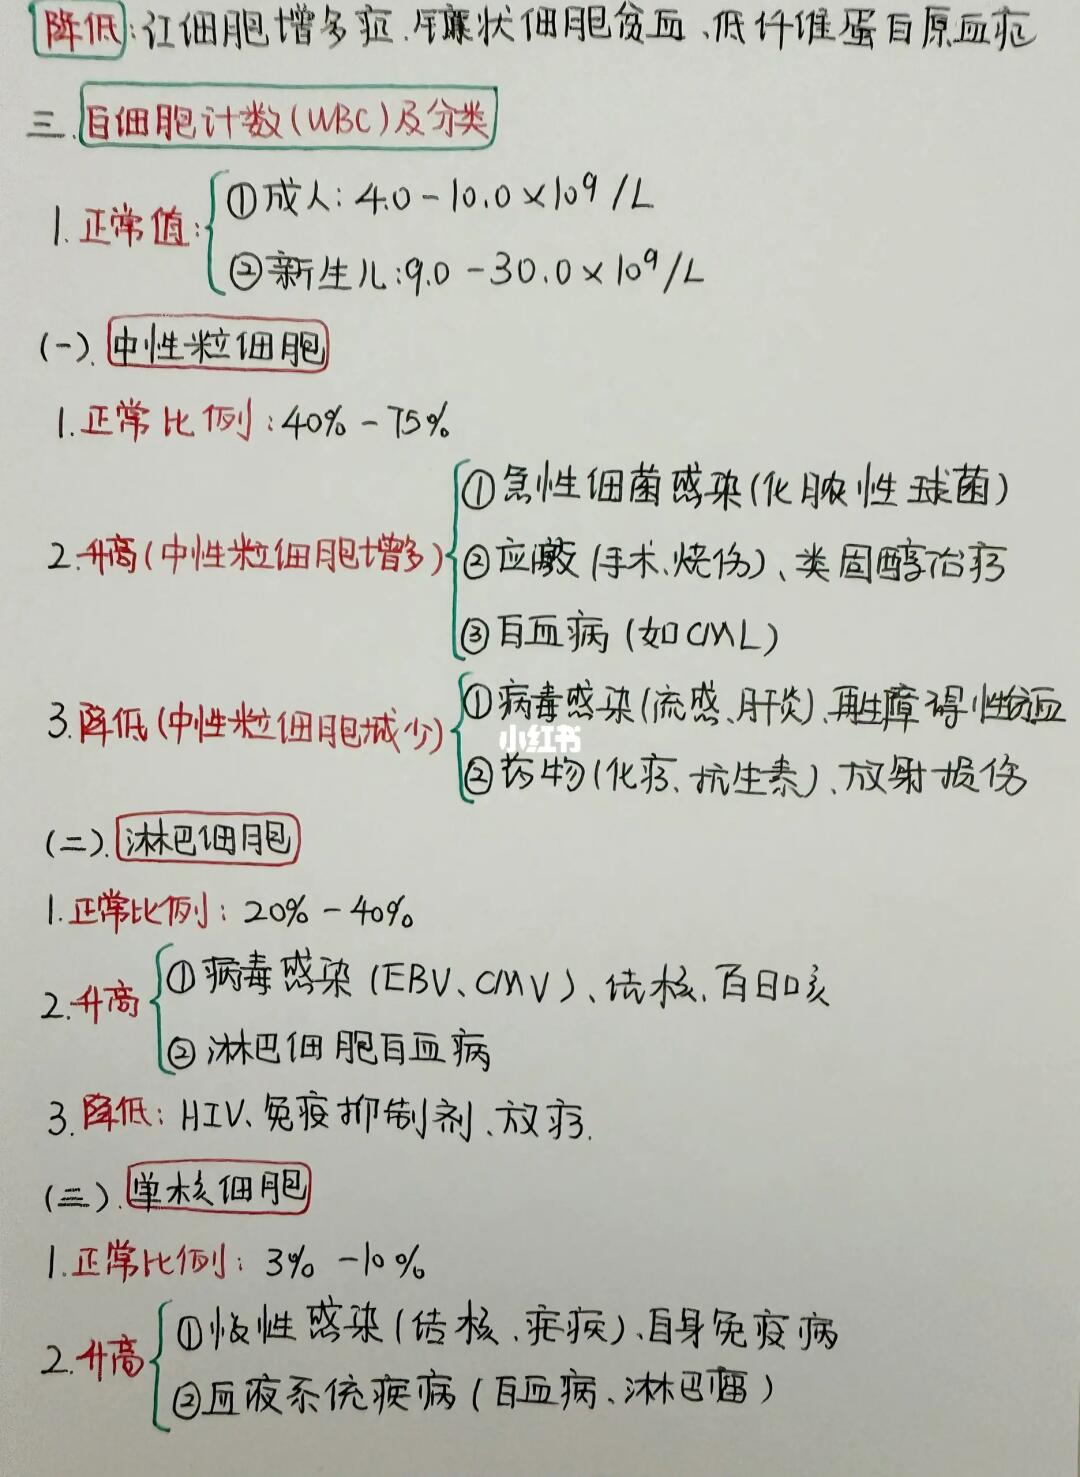 降低:红细胞增多症、镰状细胞贫血、低纤维蛋白原血症
三、白细胞计数(WBC)及分类
1.正常值:
①成人:4.0-10.0×10⁹/L
②新生儿:9.0-30.0×10⁹/L
(一).中性粒细胞
1.正常比例:40%-75%
2.升高(中性粒细胞增多)
①急性细菌感染(化脓性球菌)
②应激(手术、烧伤)、类固醇治疗
③白血病(如CML)
3.降低(中性粒细胞减少)
①病毒感染(流感、肝炎)、再生障碍性贫血
②药物(化疗、抗生素)、放射损伤
小红书
(二).淋巴细胞
1.正常比例:20%-40%
2.升高
①病毒感染(EBV、CMV)、结核、百日咳
②淋巴细胞白血病
3.降低:HIV、免疫抑制剂、放疗.
(三).单核细胞
1.正常比例:3%-10%
2.升高
①慢性感染(结核、疟疾)、自身免疫病
②血液系统疾病(白血病、淋巴瘤)